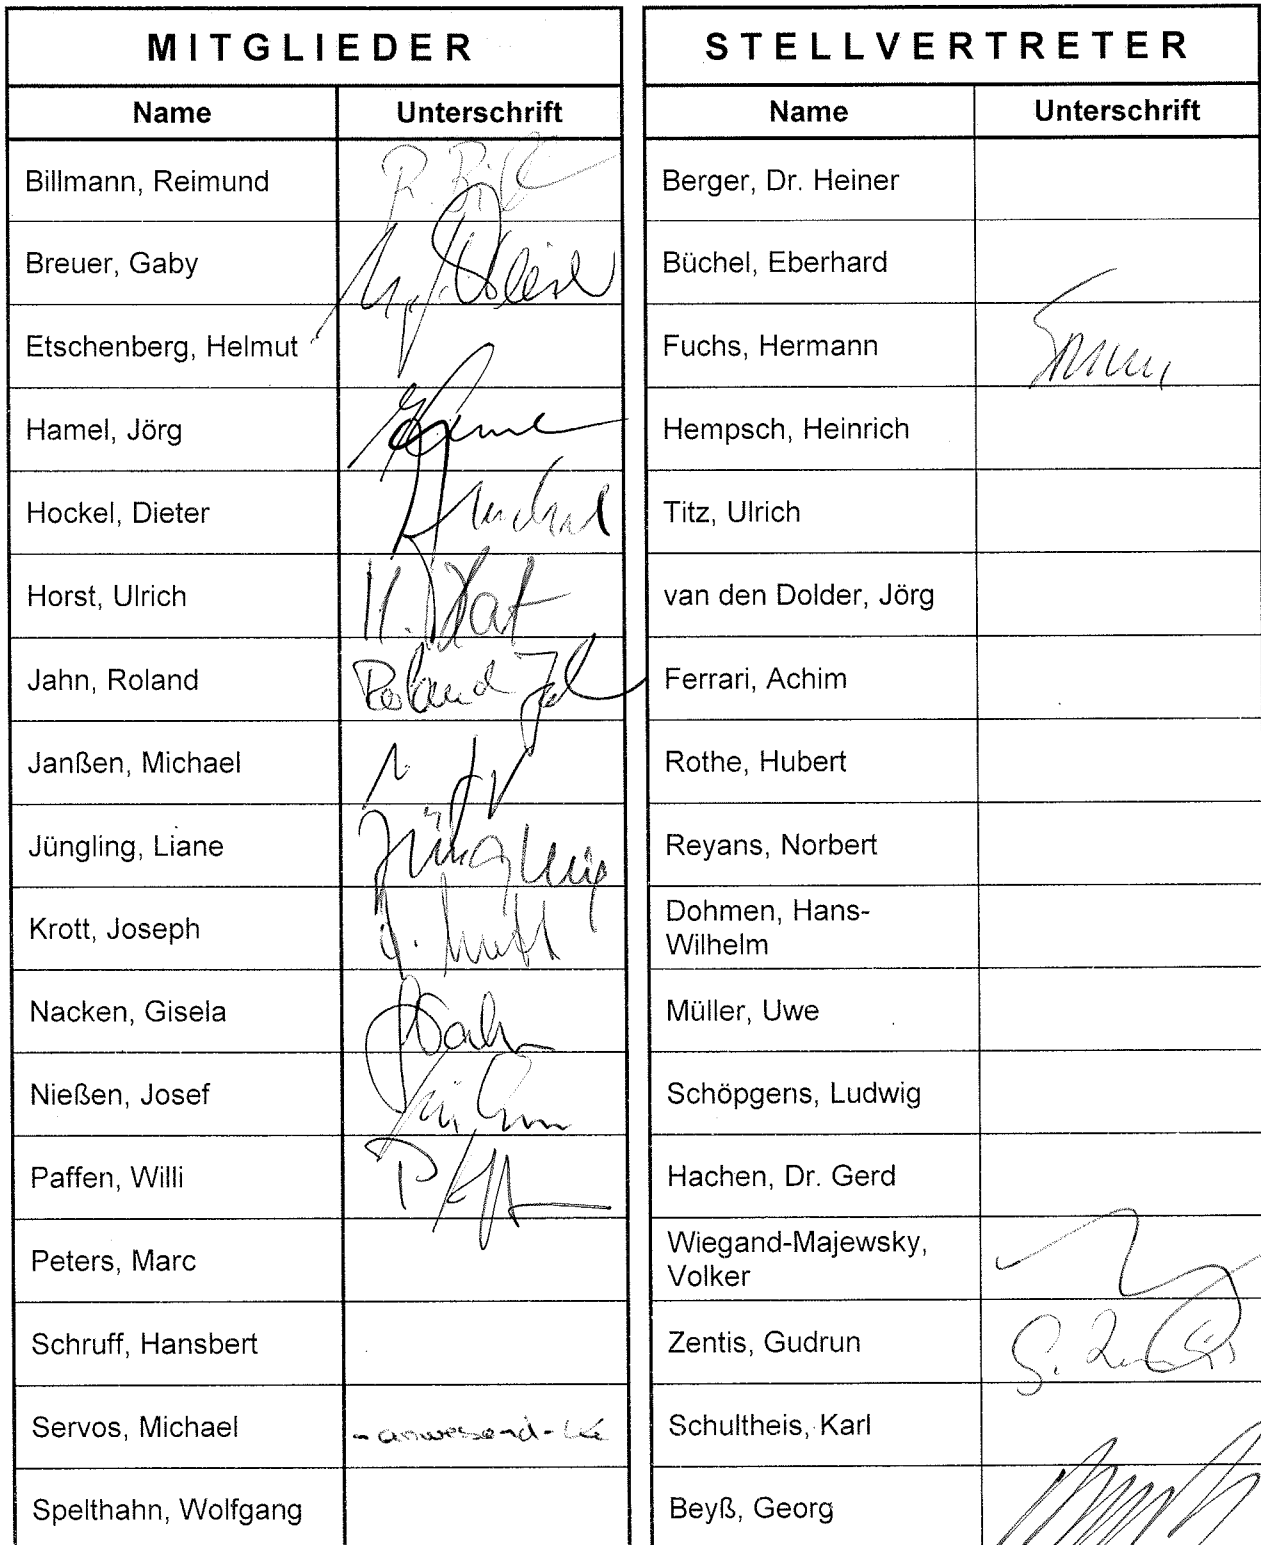 MITGLIEDER
Name Unterschrift
Billmann, Reimund
Breuer, Gaby
Etschenberg, Helmut
Hamel, Jörg
Hockel, Dieter
Horst, Ulrich
Jahn, Roland Roland
Janßen, Michael
Jüngling, Liane Jüngling
Krott, Joseph
Nacken, Gisela
Nießen, Josef
Paffen, Willi
Peters, Marc
Schruff, Hansbert
Servos, Michael - anwesend -
Spelthahn, Wolfgang
STELLVERTRETER
Name Unterschrift
Berger, Dr. Heiner
Büchel, Eberhard
Fuchs, Hermann
Hempsch, Heinrich
Titz, Ulrich
van den Dolder, Jörg
Ferrari, Achim
Rothe, Hubert
Reyans, Norbert
Dohmen, Hans-
Wilhelm
Müller, Uwe
Schöpgens, Ludwig
Hachen, Dr. Gerd
Wiegand-Majewsky,
Volker
Zentis, Gudrun G. Zentis
Schultheis, Karl
Beyß, Georg